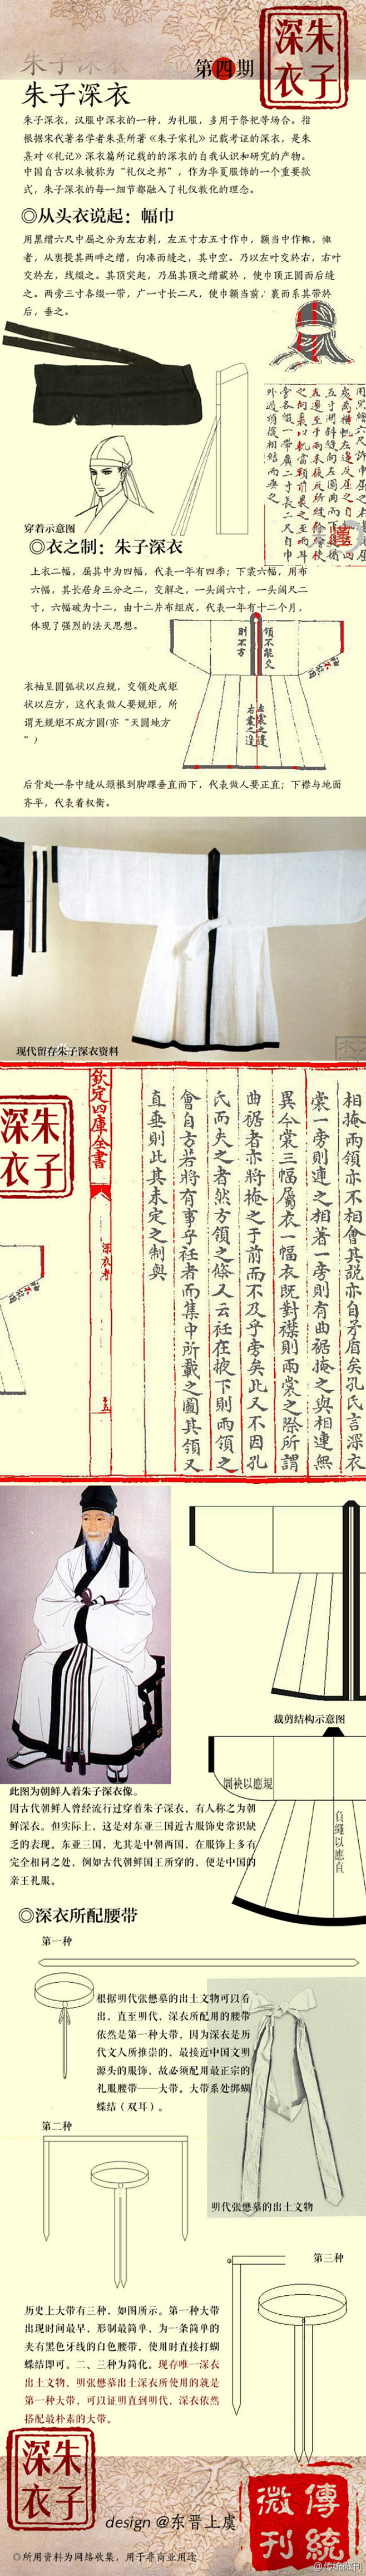 朱子深衣
第四期
朱子深衣
朱子深衣，汉服中深衣的一种，为礼服，多用于祭祀等场合。指
根据宋代著名学者朱熹所著《朱子家礼》记载考证的深衣，是朱
熹对《礼记》深衣篇所记载的的深衣的自我认识和研究的产物。
中国自古以来被称为“礼仪之邦”，作为华夏服饰的一个重要款
式，朱子深衣的每一细节都融入了礼仪教化的理念。
◎从头衣说起：幅巾
用黑缯六尺中屈之分为左右刺，左五寸右五寸作巾，额当中作㡇，㡇
者，从裏提其两畔之缯，向凑而缝之，其中空。乃以左叶交於右，右叶
交於左，线缀之。其顶突起，乃屈其顶之缯藏於，使巾顶正圆而后缝
之。两旁三寸各缀一带，广一寸长二尺，使巾额当前，裏而系其带於
后，垂之。
穿着示意图
◎衣之制：朱子深衣
上衣二幅，屈其中为四幅，代表一年有四季；下裳六幅，用布
六幅，其长居身三分之二，交解之，一头阔六寸，一头阔尺二
寸，六幅破为十二，由十二片布组成，代表一年有十二个月，
体现了强烈的法天思想。
領不能交
則不方
衣袖呈圆弧状以应规，交领处成矩
状以应方，这代表做人要规矩，所
谓无规矩不成方圆(亦“天圆地方
”)
后背处一条中缝从颈根到脚踝垂直而下，代表做人要正直；下襟与地面
齐平，代表着权衡。
现代留存朱子深衣资料
朱子深衣
欽定四庫全書
深衣考
相掩兩領亦不相會其説亦自矛盾矣孔氏言深衣
裳一旁則連之相著一旁則有曲裾掩之與相連無
異今裳三幅屬衣一幅衣既對襟則兩裳之際所謂
曲裾者亦將掩之于前而不及乎旁矣此又不因孔
氏而失之者然方領之條又云衽在掖下則兩領之
會自方若將有事乎衽者而集中所載之圖其領又
直垂則此其未定之制與
裁剪结构示意图
圓袂以應規
負繩以應直
此图为朝鲜人着朱子深衣像。
因古代朝鲜人曾经流行过穿着朱子深衣，有人称之为朝
鲜深衣。但实际上，这是对东亚三国近古服饰史常识缺
乏的表现。东亚三国、尤其是中朝两国，在服饰上多有
完全相同之处，例如古代朝鲜国王所穿的，便是中国的
亲王礼服。
◎深衣所配腰带
第一种
根据明代张懋墓的出土文物可以看
出，直至明代，深衣所配用的腰带
依然是第一种大带，因为深衣是历
代文人所推崇的，最接近中国文明
源头的服饰，故必须配用最正宗的
礼服腰带——大带。大带系处绑蝴
蝶结（双耳）。
第二种
明代张懋墓的出土文物
第三种
历史上大带有三种，如图所示。第一种大带
出现时间最早，形制最简单，为一条简单的
夹有黑色牙线的白色腰带，使用时直接打蝴
蝶结即可。二、三种为简化。现存唯一深衣
出土文物，明张懋墓出土深衣所使用的就是
第一种大带，可以证明直到明代，深衣依然
搭配最朴素的大带。
朱子深衣
design @东晋上虞
傳統微刊
◎所用资料为网络收集，用于非商业用途
@传统微刊